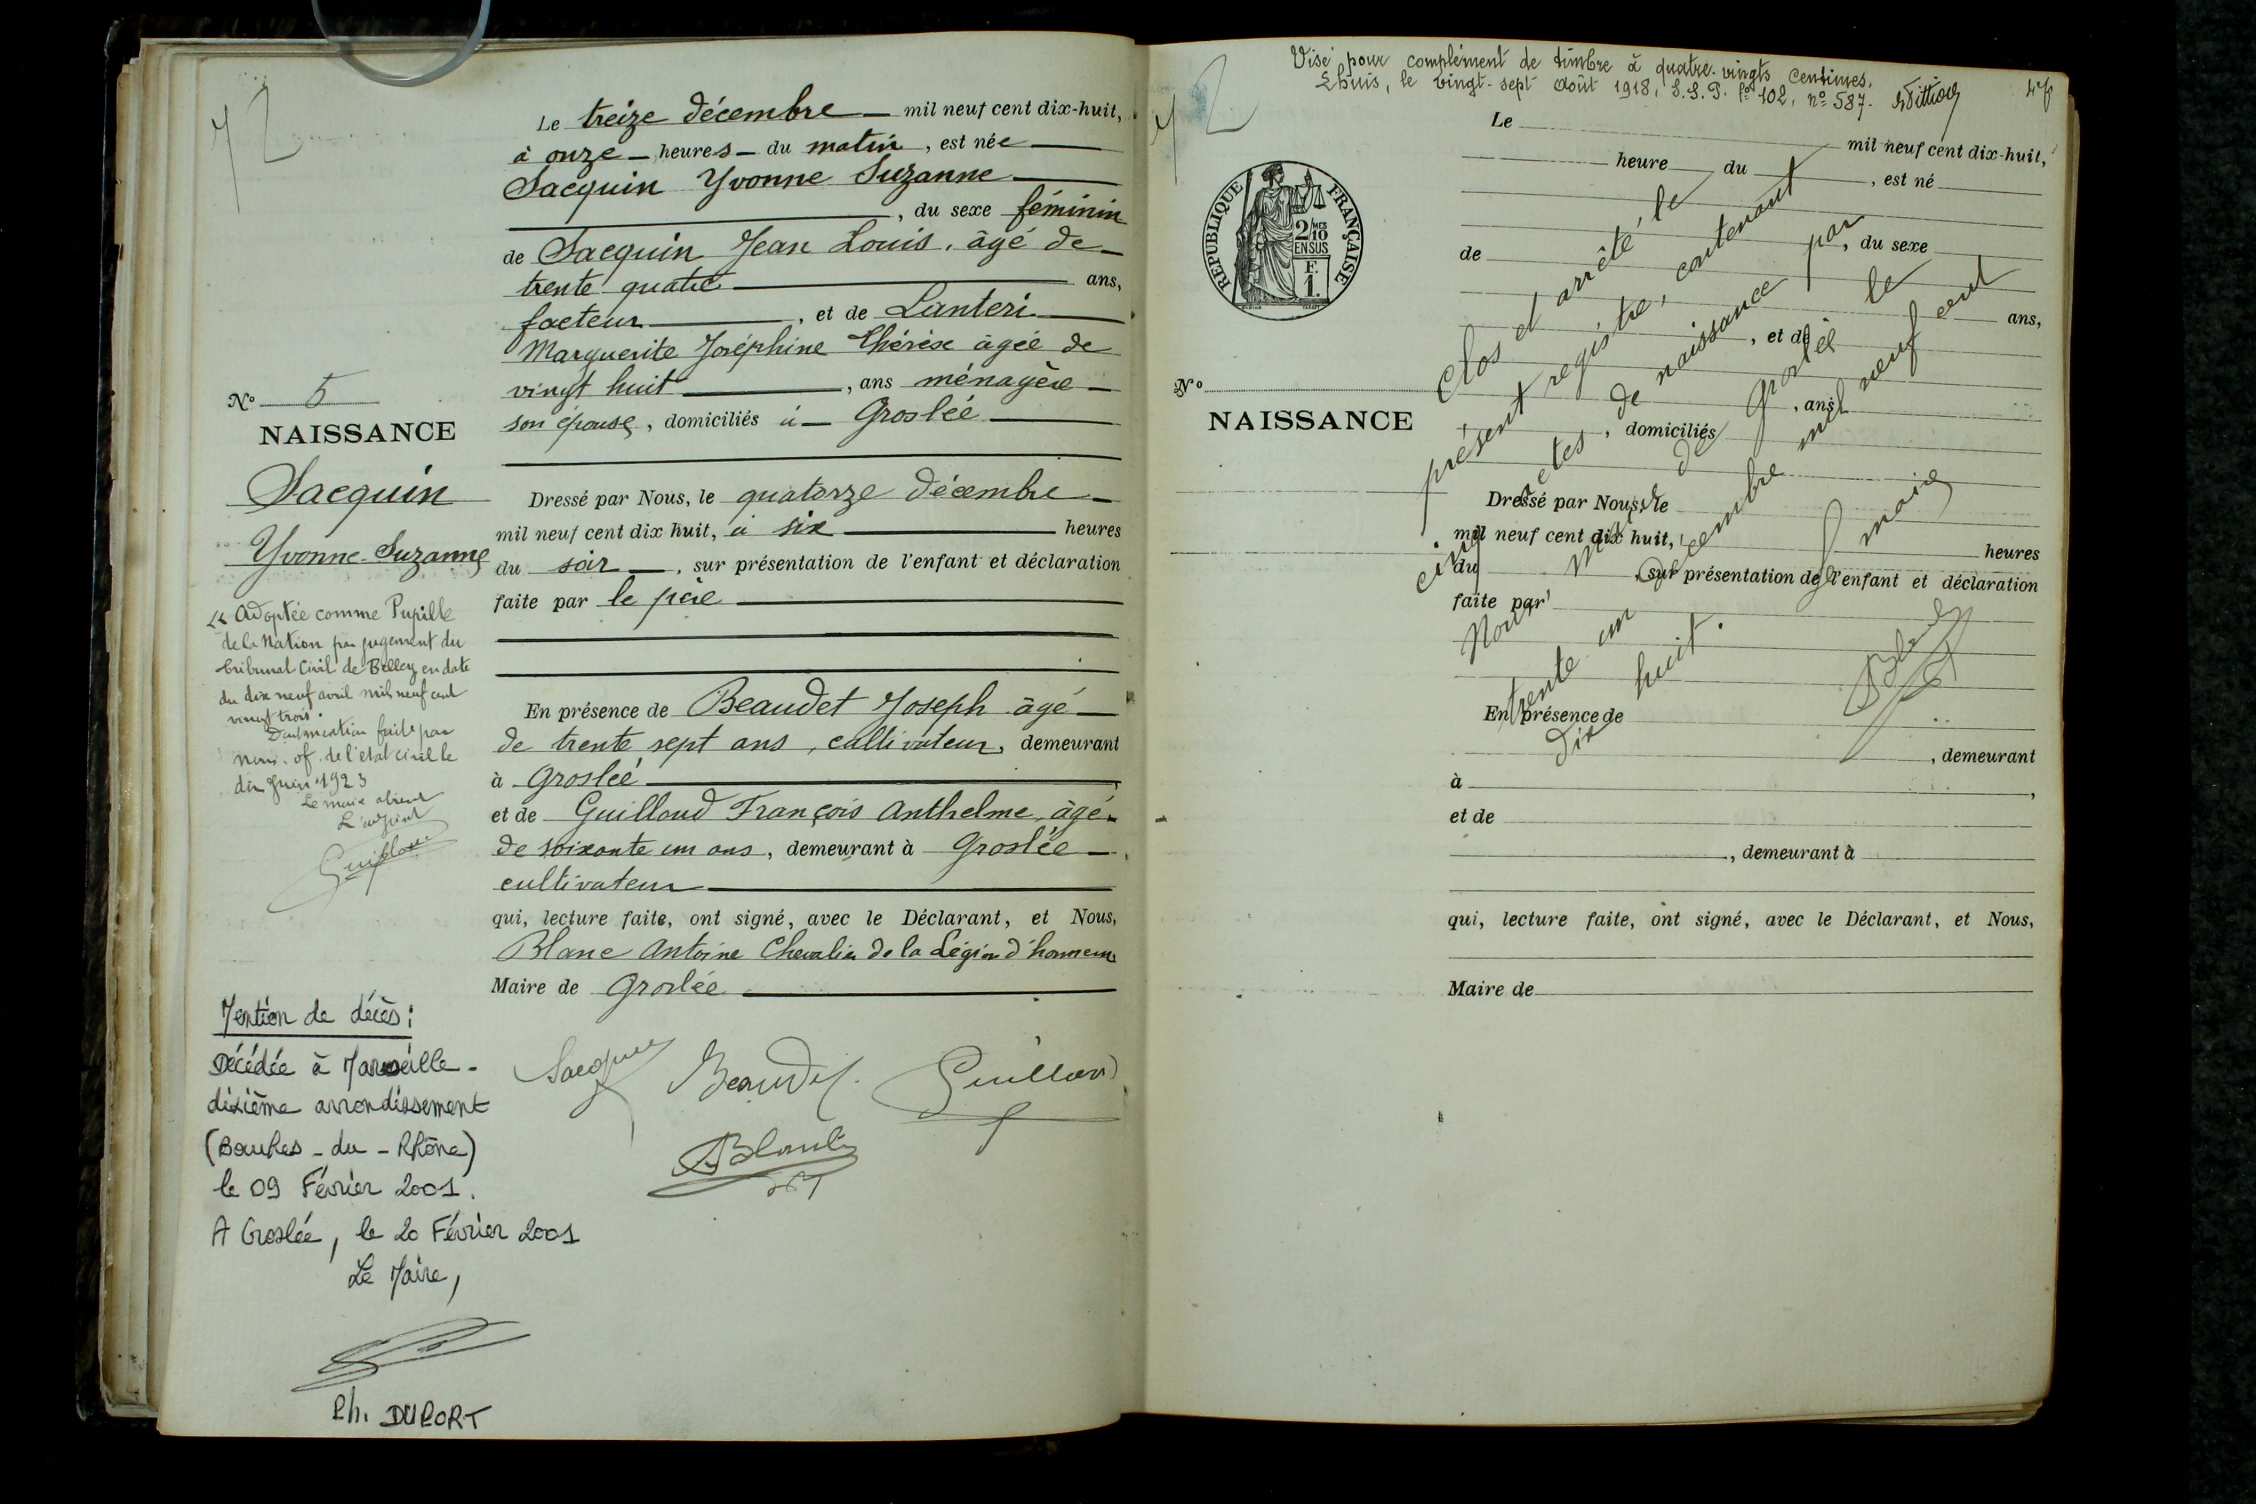 72
Le treize décembre mil neuf cent dix-huit,
à onze heures du matin, est née
Sacquin Yvonne Suzanne
, du sexe féminin
de Sacquin Jean Louis, âgé de
trente quatre ans,
facteur, et de Lanteri
Marguerite Joséphine Thérèse âgée de
vingt huit, ans ménagère
son épouse, domiciliés à Groslée
Dressé par Nous, le quatorze décembre
mil neuf cent dix huit, à six heures
du soir, sur présentation de l'enfant et déclaration
faite par le père
En présence de Beaudet Joseph âgé
de trente sept ans, cultivateur, demeurant
à Groslée
et de Guilloud François Anthelme, âgé
de soixante un ans, demeurant à Groslée
cultivateur
qui, lecture faite, ont signé, avec le Déclarant, et Nous,
Blanc Antoine Chevalier de la Légion d'honneur
Maire de Groslée
Sacquin Beaudet Guilloud
Blanc
No 5
NAISSANCE
Sacquin
Yvonne Suzanne
Adoptée comme Pupille
de la Nation par jugement du
tribunal Civil de Belley en date
du dix neuf avril mil neuf cent
vingt trois.
mention faite par
nous. of. de l'état civil le
dix Juin 1923
Le maire absent
L'adjoint
Guilloud
Mention de décès:
Décédée à Marseille -
dixième arrondissement
(Bouches - du - Rhône)
le 09 Février 2001.
A Groslée, le 20 Février 2001
Le Maire,
Ph. DUPORT
72
Visé pour complément de timbre à quatre-vingts centimes.
Lhuis, le vingt-sept Août 1918, S.S.P. fo 102, no 587.
REPUBLIQUE FRANÇAISE
2/10 MES
EN SUS
F.
1.
Le mil neuf cent dix-huit,
heure du, est né
, du sexe
de
ans,
, et de
, ans
No
NAISSANCE
, domiciliés
Dressé par Nous, le
mil neuf cent dix huit, heures
du, sur présentation de l'enfant et déclaration
faite par
En présence de
, demeurant
à,
et de
, demeurant à
qui, lecture faite, ont signé, avec le Déclarant, et Nous,
Maire de
Clos et arrêté le
présent registre, contenant
cinq actes de naissance par
Nous, maire de Groslée le
trente un décembre mil neuf cent
dix huit.
Le maire
Blanc